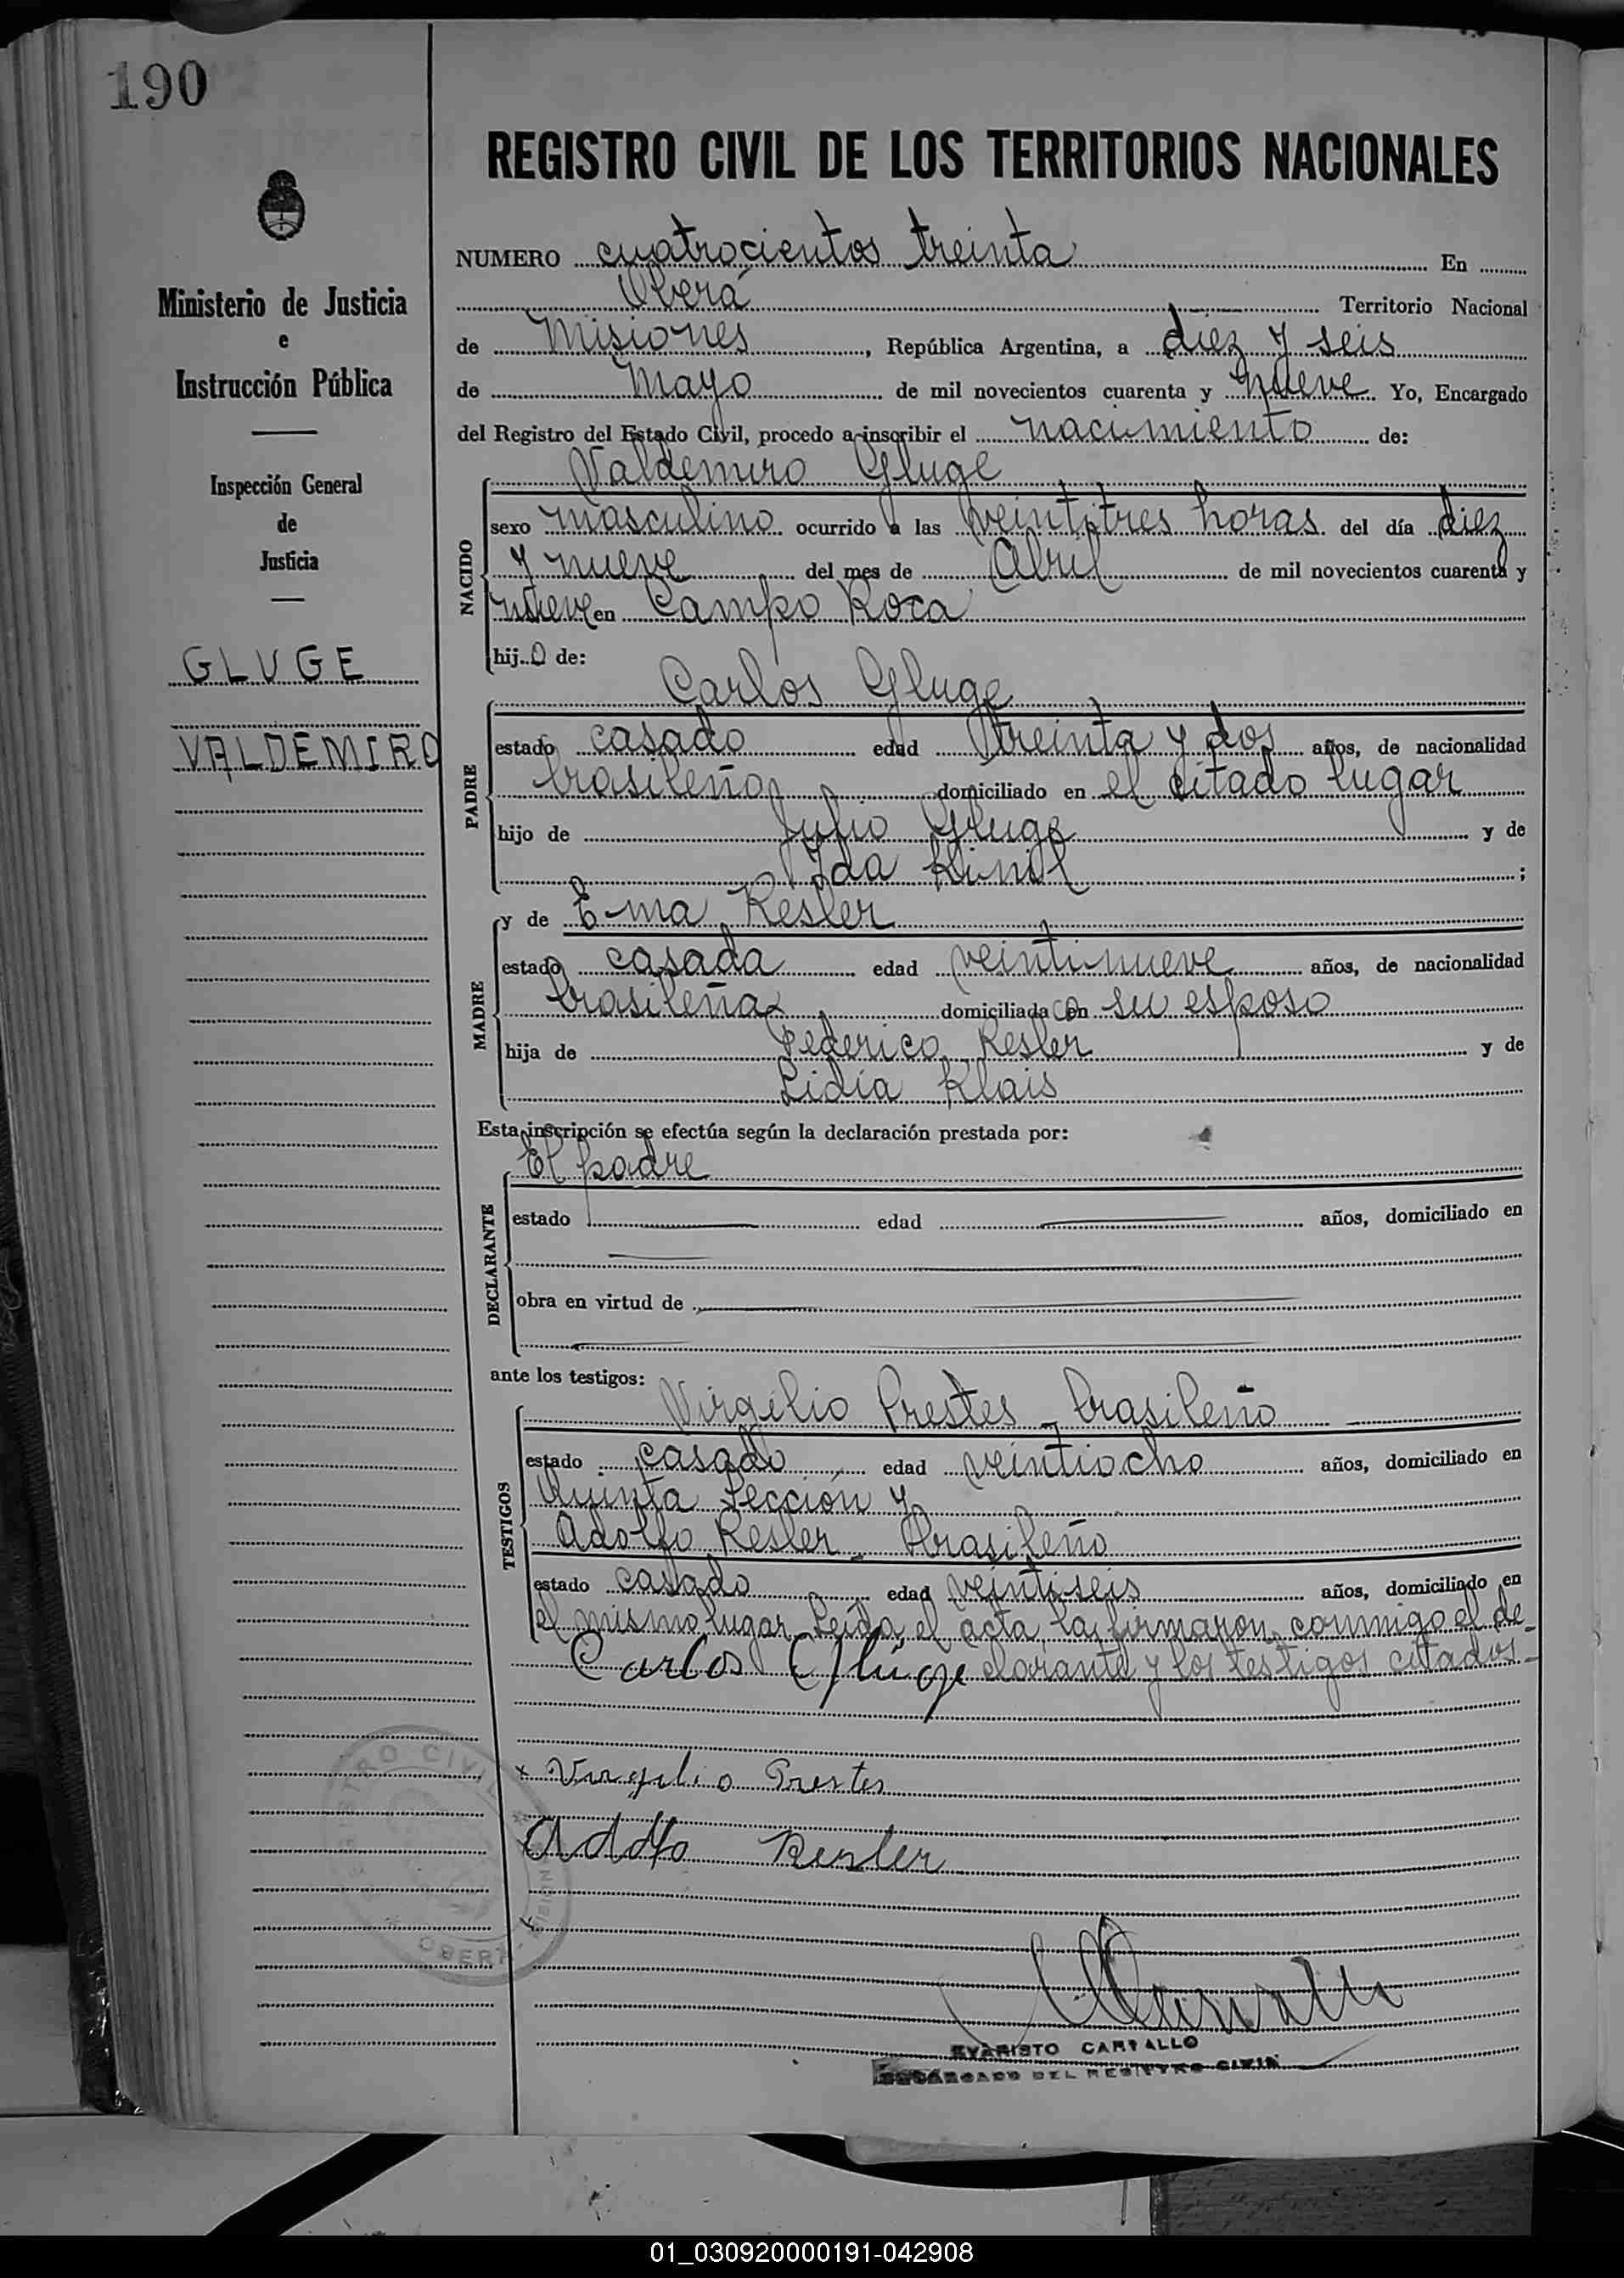 190
REGISTRO CIVIL DE LOS TERRITORIOS NACIONALES
Ministerio de Justicia
e
Instrucción Pública
Inspección General
de
Justicia
GLUGE
VALDEMIRO
NUMERO cuatrocientos treinta En
Oberá Territorio Nacional
de Misiones, República Argentina, a diez y seis
de Mayo de mil novecientos cuarenta y nueve. Yo, Encargado
del Registro del Estado Civil, procedo a inscribir el nacimiento de:
Valdemiro Gluge
NACIDO
sexo masculino ocurrido a las veintitres horas del día diez
y nueve del mes de Abril de mil novecientos cuarenta y
nueve en Campo Roca
hijo de:
Carlos Gluge
PADRE
estado casado edad treinta y dos años, de nacionalidad
brasileña domiciliado en el citado lugar
hijo de Julio Gluge y de
Ida ;
MADRE
y de Ema Resler
estado casada edad veintinueve años, de nacionalidad
brasileña domiciliada con su esposo
hija de Federico Resler y de
Lidia Klais
Esta inscripción se efectúa según la declaración prestada por:
El padre
DECLARANTE
estado edad años, domiciliado en
obra en virtud de
ante los testigos:
Virgilio Prestes - brasileño
TESTIGOS
estado casado edad veintiocho años, domiciliado en
Quinta Sección y
Adolfo Resler - Brasileño
estado casado edad veintiseis años, domiciliado en
el mismo lugar. Leída el acta, la firmaron conmigo el de-
clarante y los testigos citados.-
Carlos Glüge
x Virgilio Prestes
Adolfo Resler
x
REGISTRO CIVIL
OBERA - MISIONES
EVARISTO CARVALLO
ENCARGADO DEL REGISTRO CIVIL
01_030920000191-042908